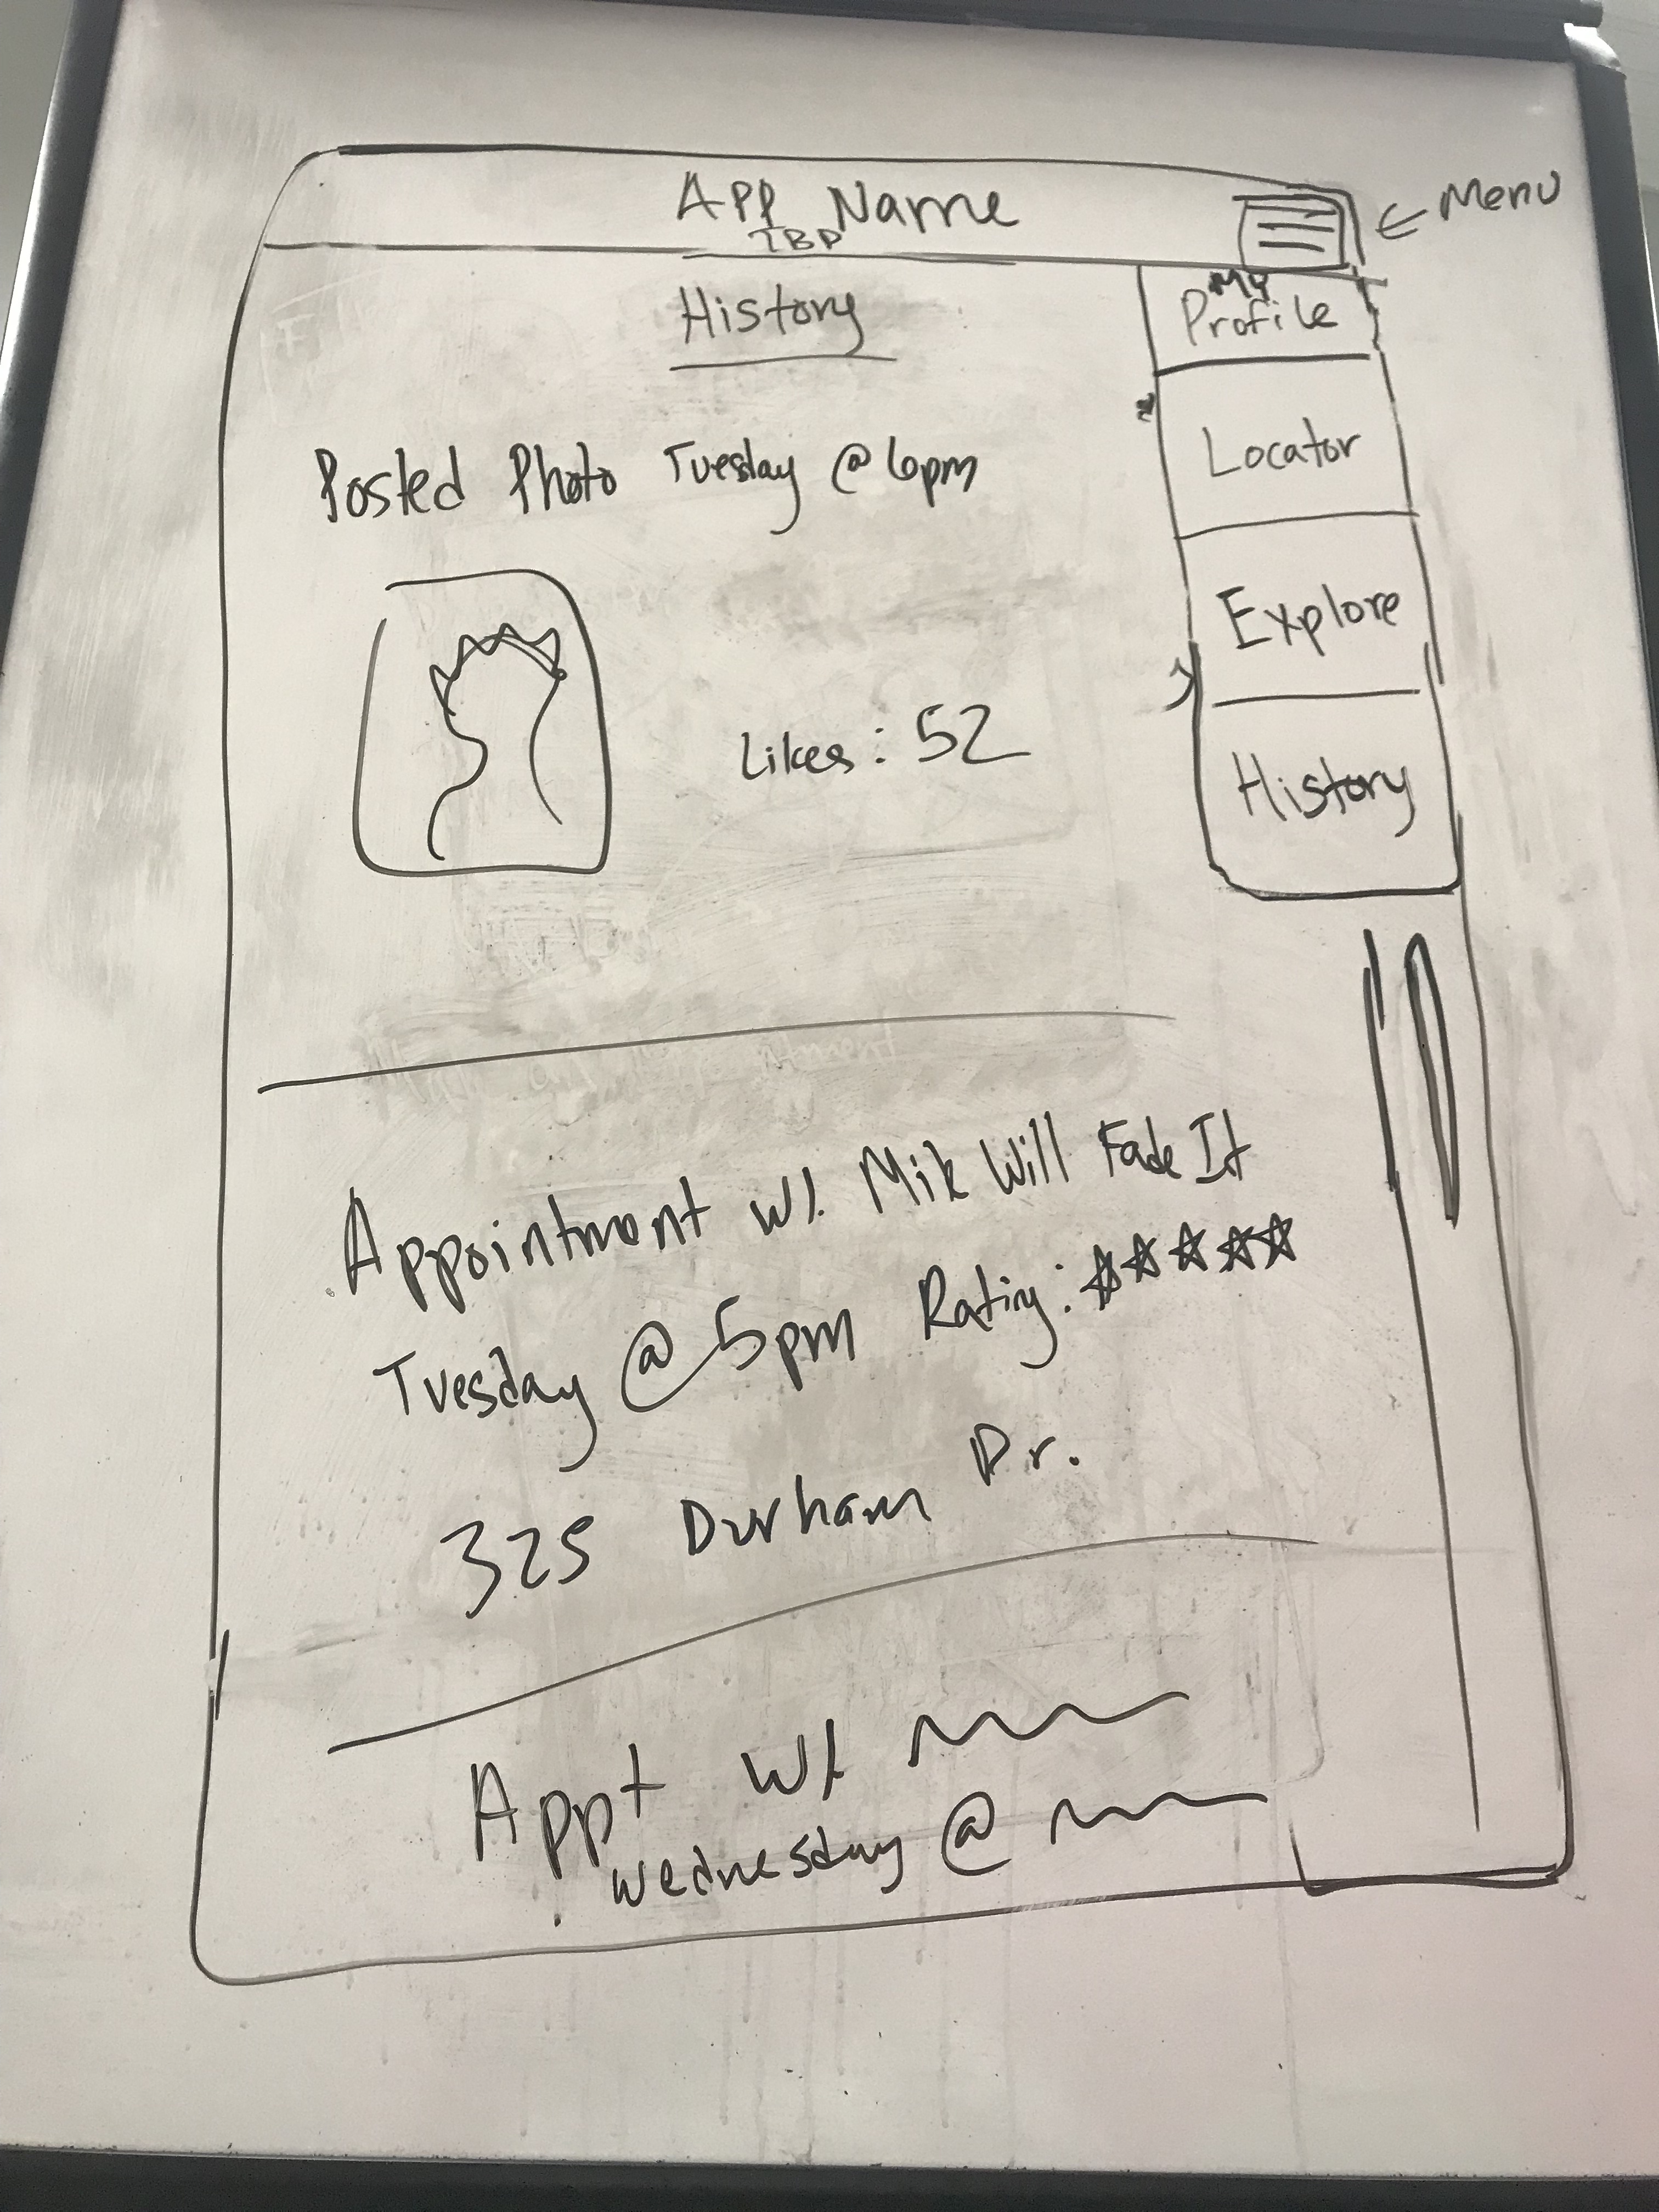 App Name
TBD
Menu
History
My
Profile
Locator
Explore
History
Posted Photo Tuesday @ 6pm
Likes: 52
Appointment w/. Mik Will Fade It
Tuesday @ 5pm Rating: ☆☆☆☆☆
325 Durham Dr.
Appt w/.
Wednesday @